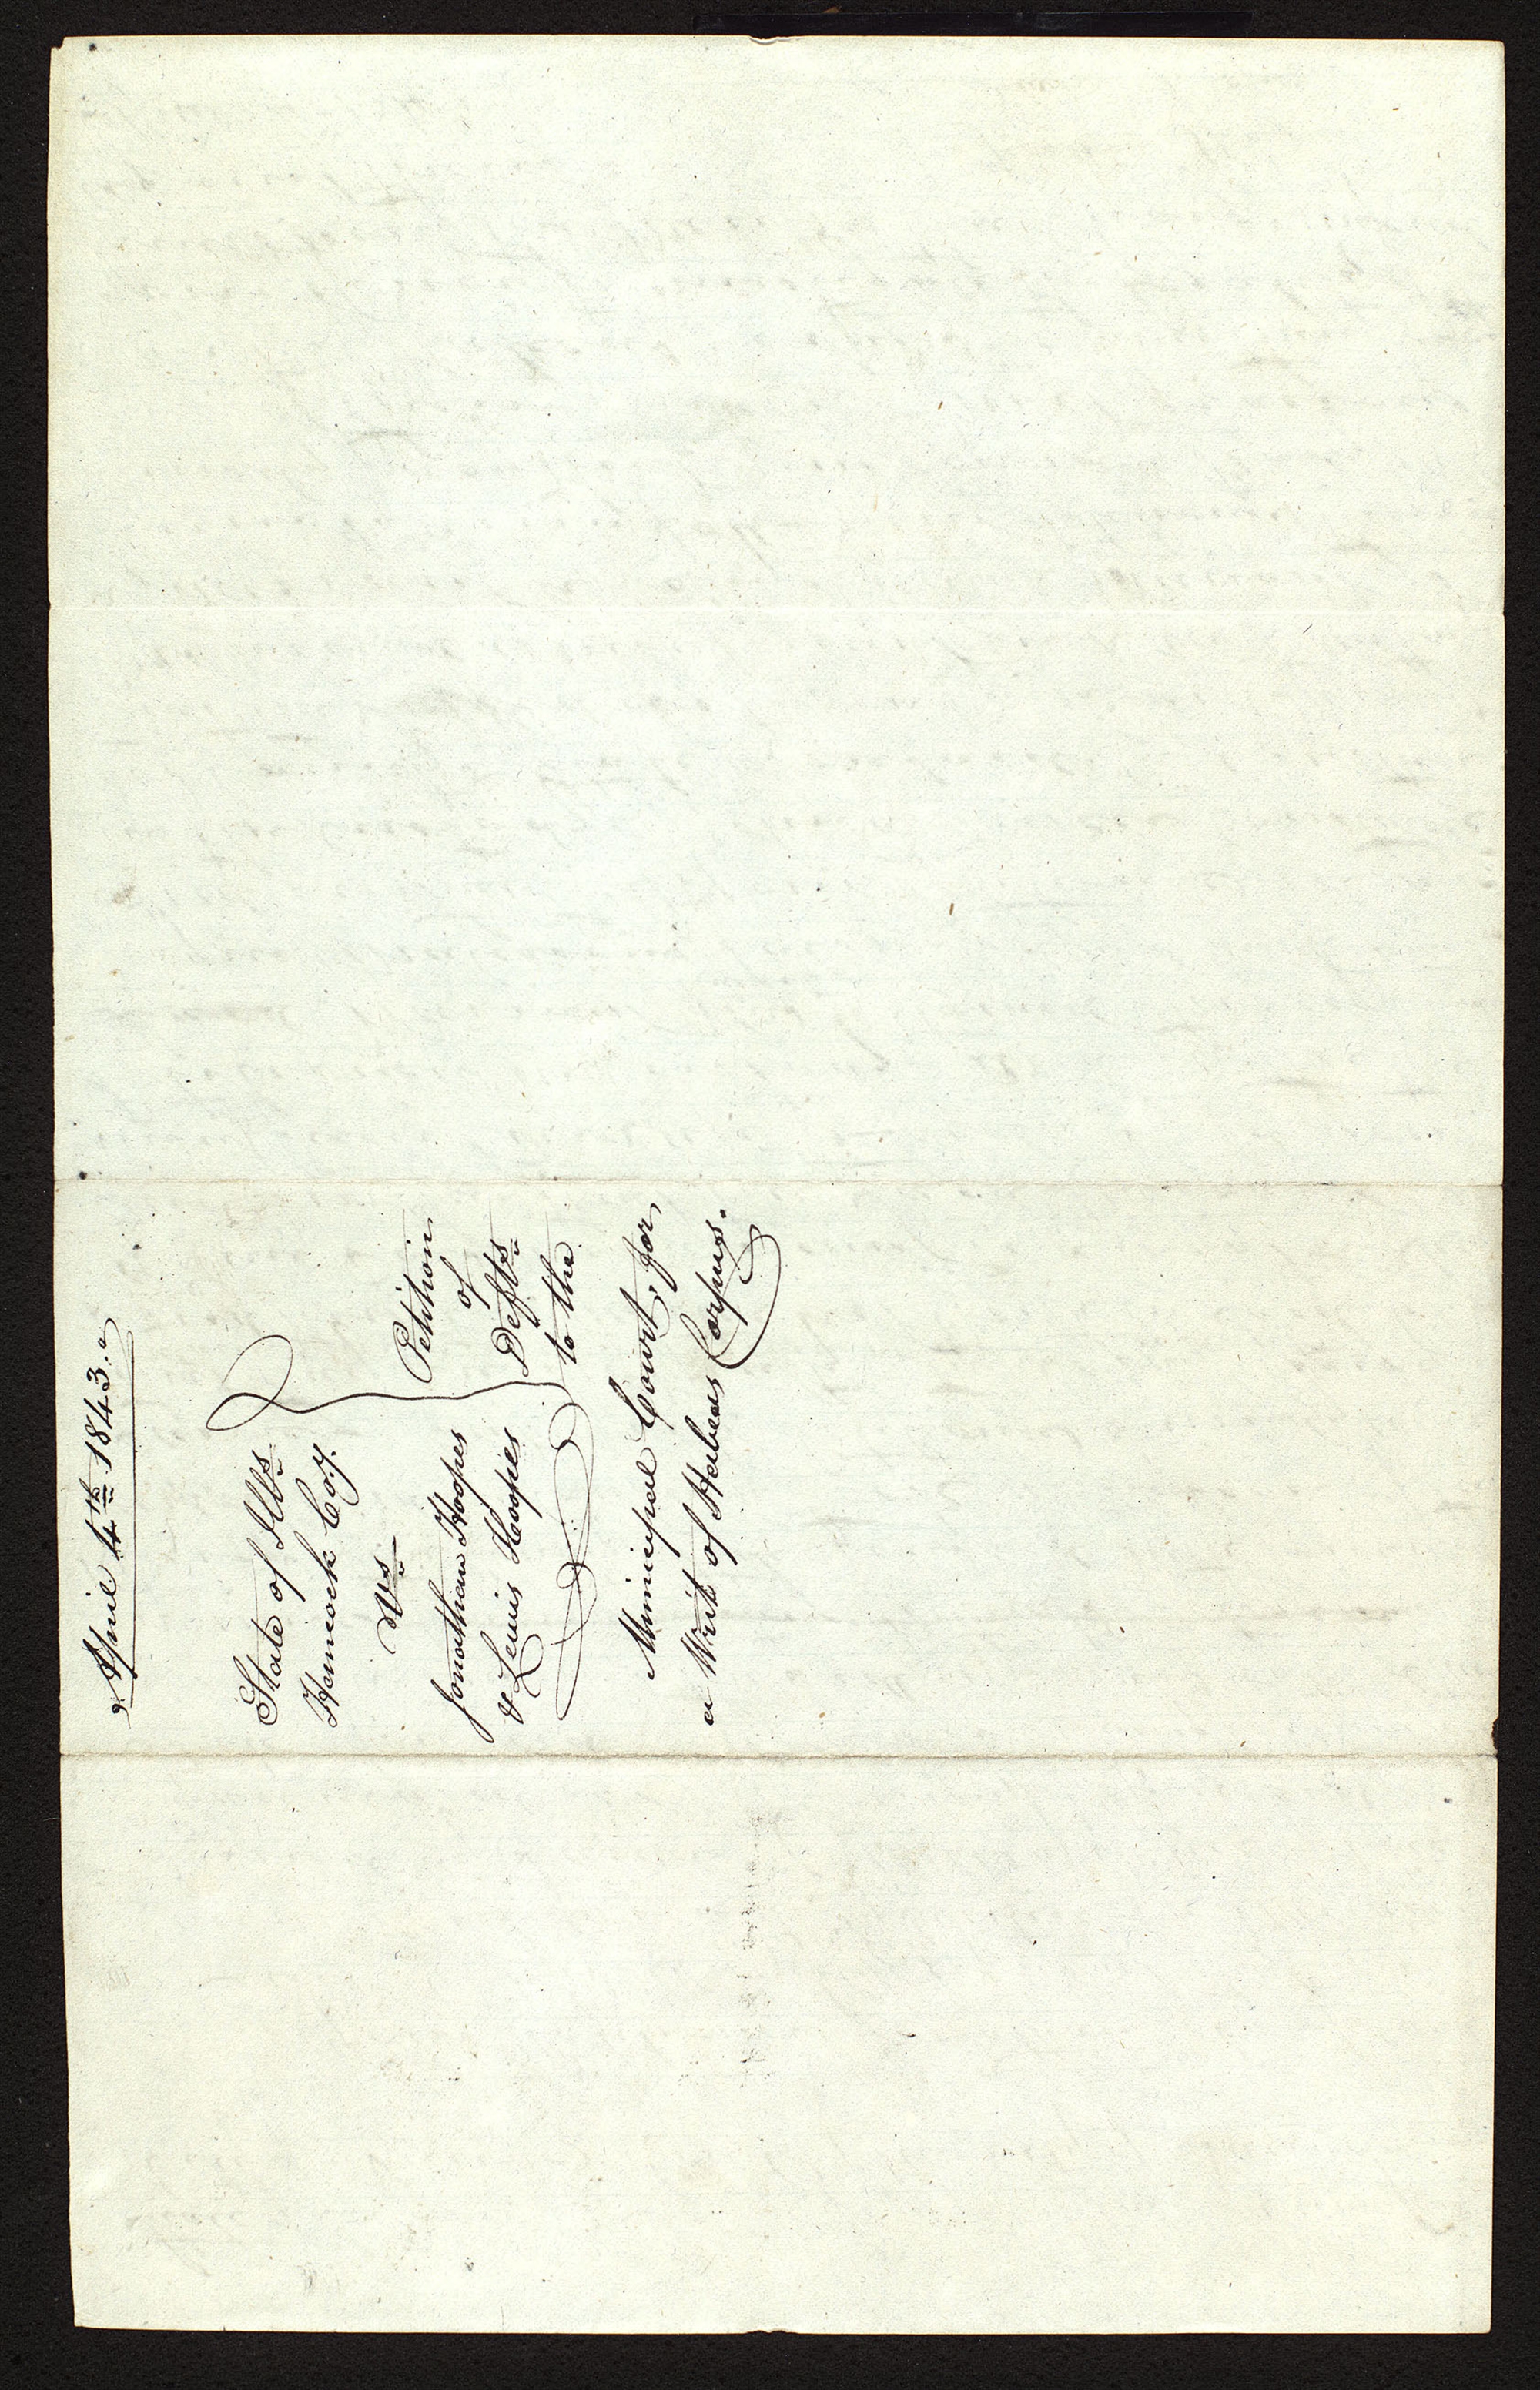 April 4th 1843.
State of Ills
Hancock Co.y.
Vs
Jonathan Hoopes
& Lewis Hoopes
Petition
of
Defts
to the
Municipal Court, for
a Writ of Habeas Corpus.